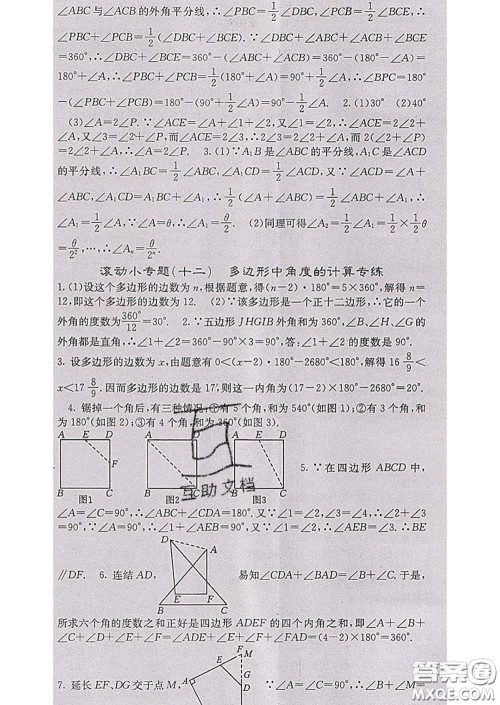 ∠ABC与∠ACB的外角平分线,∴∠PBC=1/2∠DBC,∠PCB=1/2∠BCE,
∴∠PBC+∠PCB=1/2(∠DBC+∠BCE)=1/2∠DBC+1/2∠BCE,
∴∠DBC+∠BCE.∵∠DBC+∠ABC+∠ACB+∠BCE
=360°,∴∠DBC+∠BCE=360°-(∠ABC+∠ACB)=360°-(180°-∠A)=
180°+∠A,∴∠PBC+∠PCB=1/2(180°+∠A)=90°+1/2∠A,∴∠BPC=180°
-(∠PBC+∠PCB)=180°-(90°+1/2∠A)=90°-1/2∠A. 2.(1)30° (2)40°
(3)∠A=2∠P.∵∠ACE=∠A+∠1+∠2,又∠1=∠2,∴∠ACE=2∠2+
∠A,又∠3=∠2+∠P,而∠ACE=2∠3,∴2∠3=2∠2+∠A,而2(∠2+∠P)
=2∠2+∠A,∴∠A=2∠P. 3.(1)∵A₁B是∠ABC的平分线,A₁C是∠ACD
的平分线,∴∠A₁BC=1/2∠ABC,∠A₁CD=1/2∠ACD.又∵∠ACD=∠A+
∠ABC,∠A₁CD=∠A₁BC+∠A₁,∴1/2(∠A+∠ABC)=1/2∠ABC+∠A₁,
∴∠A₁=1/2∠A,∵∠A=θ,∴∠A₁=θ/2. (2)同理可得∠A₂=1/2∠A₁=1/2·θ/2=
θ/2²,…,∴∠Aₙ=θ/2ⁿ.
滚动小专题(十二) 多边形中角度的计算专练
1.(1)设这个多边形的边数为n,根据题意,得(n-2)·180°=5×360°,解得n=
12,即这个多边形的边数为12. (2)∵该多边形是一个正十二边形,∴它的一个
外角的度数为360°/12=30°. 2.∵五边形JHGIB外角和为360°,∠B、∠H、∠G的
外角都是直角,∴∠1+∠2=360°-90°×3=90°.答:∠1+∠2的度数是90°.
3.设多边形的边数为x,由题意有0<(x-2)·180°-2680°<180°,解得16 8/9<
x<17 8/9.因而多边形的边数是17,则这一内角为(17-2)×180°-2680°=20°.
4.锯掉一个角后,有三种情况:①有5个角,和为540°(如图1);②有3个角,和
为180°(如图2);③有4个角,和为360°(如图3).
A E D A D A E D
F
B C B C B C
图1 图2 图3
互助文档
5.∵在四边形ABCD中,
∠A=∠C=90°,∴∠ABC+∠ADC=180°.又∵∠1=∠2,∠3=∠4,∴∠2+∠4
=90°.又∵∠A=90°,∴∠1+∠AEB=90°.又∵∠1=∠2,∴∠AEB=∠3.∴BE
∥DF. 6.连结AD, 易知∠CDA+∠BAD=∠B+∠C.于是,
D A
E F
B C
所求六个角的度数之和正好是四边形ADEF的四个内角之和,即∠A+∠B+
∠C+∠D+∠E+∠F=∠ADE+∠E+∠F+∠FAD=(4-2)×180°=360°.
7.延长EF、DG交于点M, ∵∠A=∠C=90°,
F M
E
G
D
A
答案圈
MXQE.COM